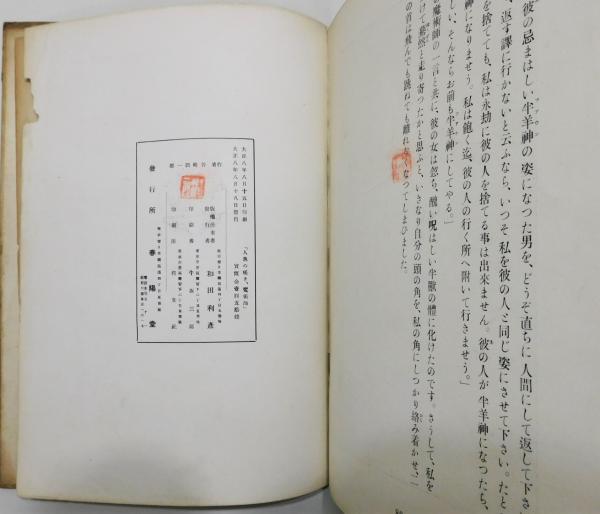 彼の忌まはしい半羊神の姿になつた男を、どうぞ直ちに人間にして返して下さい
返す譯に行かないと云ふなら、いつそ私を彼の人と同じ姿にさせて下さい。たと
を捨てても、私は永劫に彼の人を捨てる事は出來ません。彼の人が半羊神になつたら、
神になりませう。私は飽く迄、彼の人の行く所へ附いて行きませう。」
しい、そんならお前も半羊神にしてやる。」
魔術師の一言と共に、彼の女は忽ち、醜い呪はしい半獸の體に化けたのです。さうして、私を
けて驀然と走り寄つたかと思ふと、いきなり自分の頭の角を、私の角にしつかり絡み着かせ、二
の首は飛んでも跳ねても離れなくなつてしまひました。
「人魚の嘆き、魔術師」
實價金壹圓五拾錢
大正八年八月十五日印刷
大正八年八月十八日發行
著作者 谷崎潤一郎
發行者 和田利彦
印刷者
發行所 春陽堂